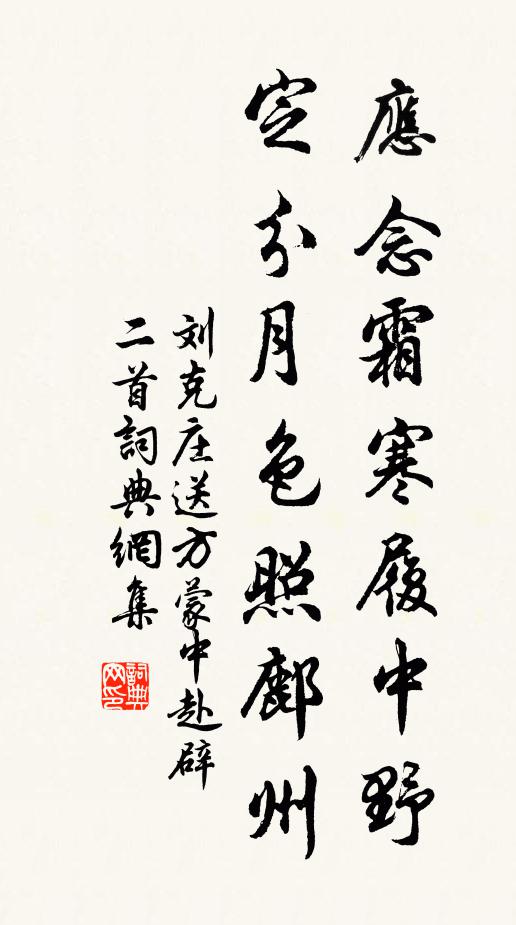 應念霜寒履中野
定分月色照鄜州
刘克庄送方蒙中赴辟
二首詞典網集
詞典
网印